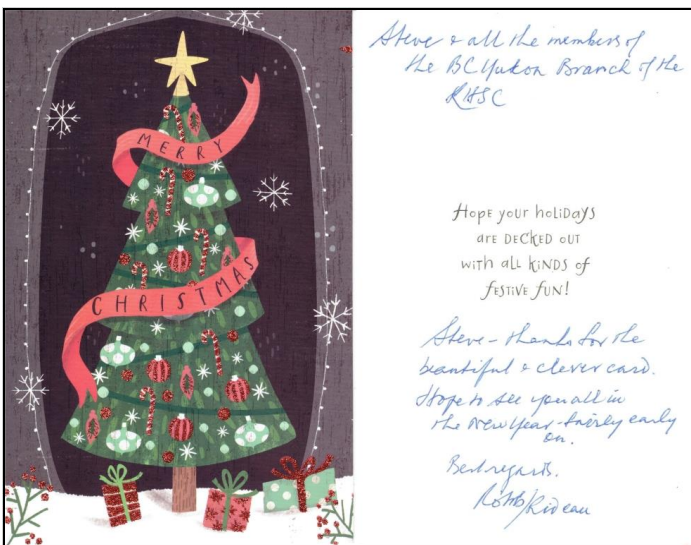 MERRY
CHRISTMAS
Steve & all the members of
the BC Yukon Branch of the
RHSC
Hope your holidays
are DECKED OUT
with all kinds of
festive fun!
Steve - thanks for the
beautiful & clever card.
Hope to see you all in
the New Year - fairly early
on.
Best regards.
Robb/Rideau